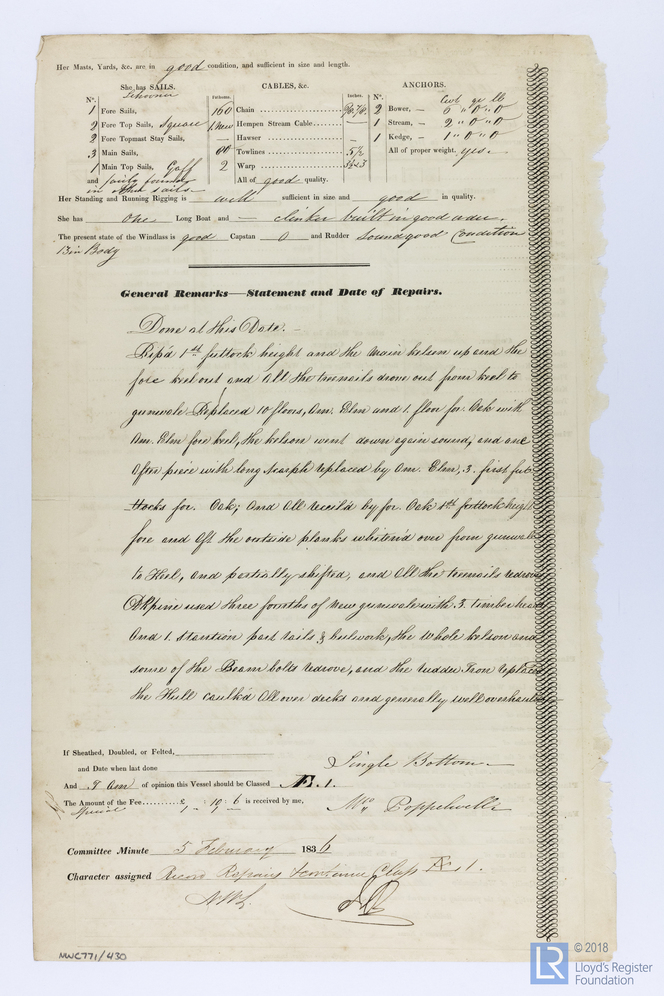 Her Masts, Yards, &c. are in good condition, and sufficient in size and length.
She has SAILS. CABLES, &c. ANCHORS.
Schooner
Nº. Fathoms. Inches. Nº. Cwt qr lb
1 Fore Sails, 160 Chain 2 Bower, — 6 " 0 " 0
2 Fore Top Sails, Square Hempen Stream Cable — 1 Stream, — 2 " 0 " 0
2 Fore Topmast Stay Sails, — Hawser — 1 Kedge, — 1 " 0 " 0
3 Main Sails, 60 Towlines 5½ All of proper weight. yes.
1 Main Top Sails, Gaff 2 Warp
and fairly found All of good quality.
in other sails.
Her Standing and Running Rigging is well sufficient in size and good in quality.
She has one Long Boat and — clinker built in good
The present state of the Windlass is good Capstan 0 and Rudder Sound good Condition
Body
General Remarks—Statement and Date of Repairs.
Done at this Date. —
Rep'd 1st futtock height and the main kelson up and the
fore keel out and all the treenails drove out from keel to
gunwale. Replaced 10 floors, Am. Elm and 1. floor for. Oak with
Am. Elm fore keel, the kelson went down again sound, and one
Often piece with long Scarph replaced by Am. Elm, 3. first fut-
-tocks for. Oak; and all by for. Oak 1st futtock heigh
fore and aft the outside planks over from gunwale
to Keel, and partially shifted, and all the treenails redrove
pine used three fourths of new gunwale with 3. timber heads
And 1. stantion part rails & bulwork, the whole kelson and
some of the Beam bolts redrove, and the rudder Iron replaced
the Hull caulk'd all over decks and generally well overhauled
If Sheathed, Doubled, or Felted, Single Bottom —
and Date when last done
And I am of opinion this Vessel should be Classed Æ. 1.
The Amount of the Fee £ " 10 " 6 is received by me, Wm Poppelwell
Special
Committee Minute 5 February 1836
Character assigned Record Repairs & continue Class Æ 1.
NWC771/430
LR
© 2018
Lloyd's Register
Foundation